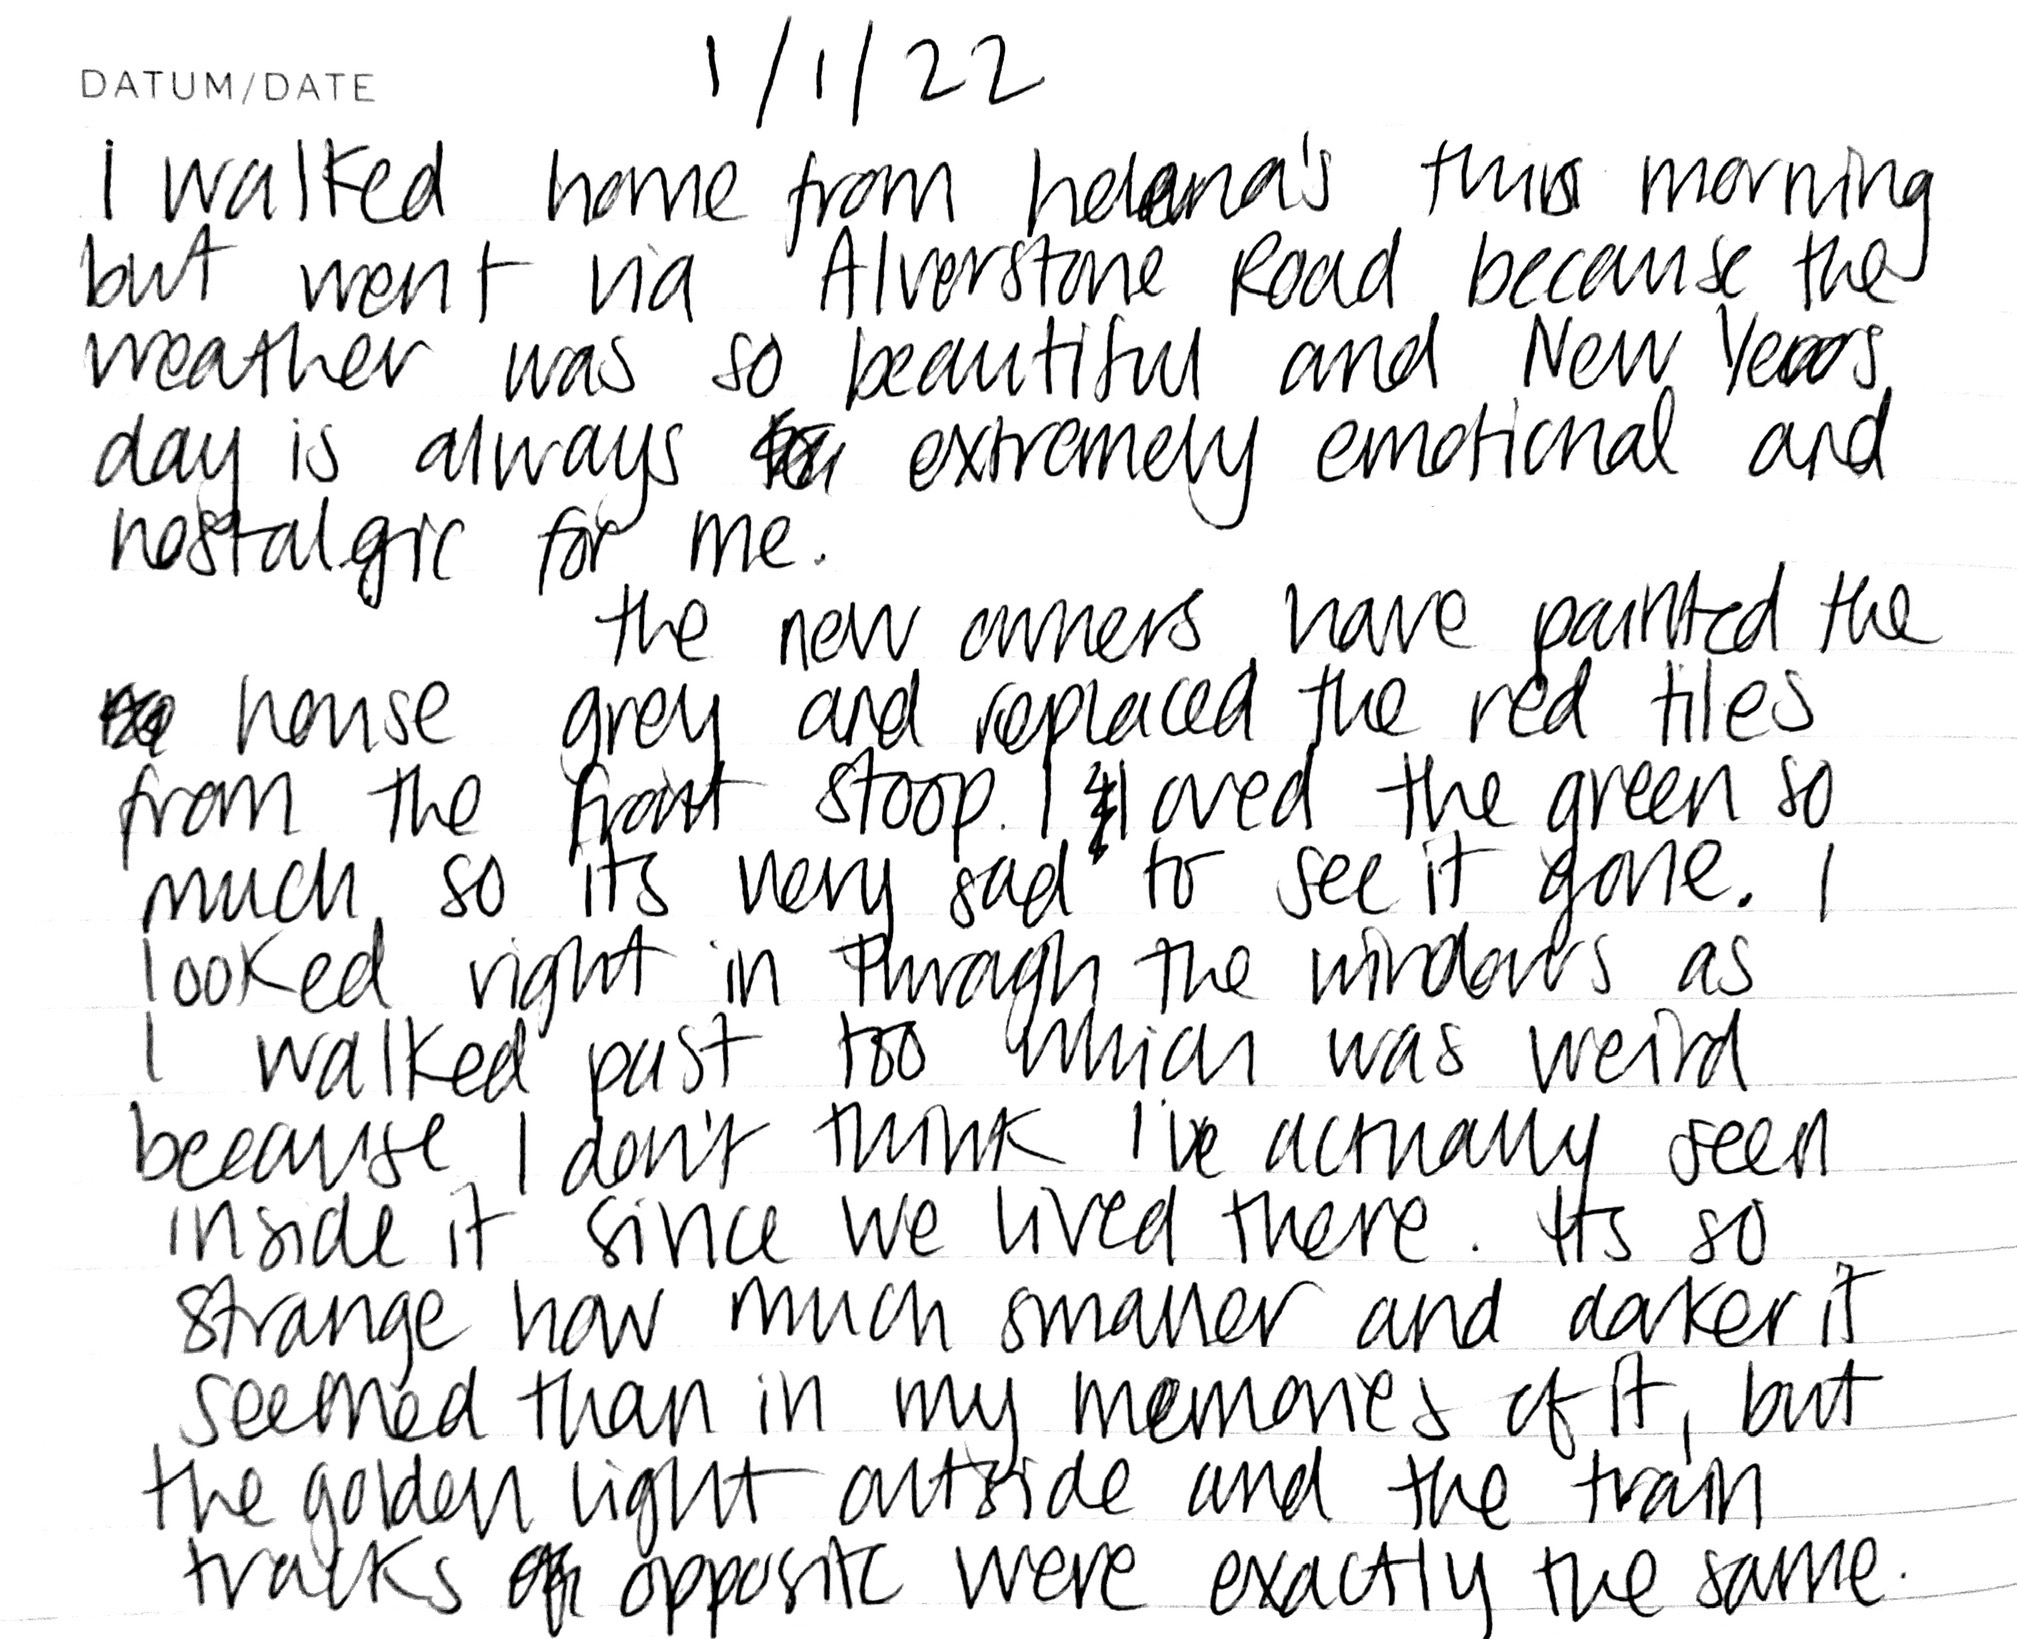 DATUM/DATE 1/1/22
I walked home from helena's this morning
but went via Alverstone Road because the
weather was so beautiful and New Years
day is always extremely emotional and
nostalgic for me.
the new owners have painted the
house grey and replaced the red tiles
from the front stoop. I loved the green so
much so its very sad to see it gone. I
looked right in through the windows as
I walked past too which was weird
because I don't think I've actually seen
inside it since we lived there. Its so
strange how much smaller and darker it
seemed than in my memories of it, but
the golden light outside and the train
tracks opposite were exactly the same.